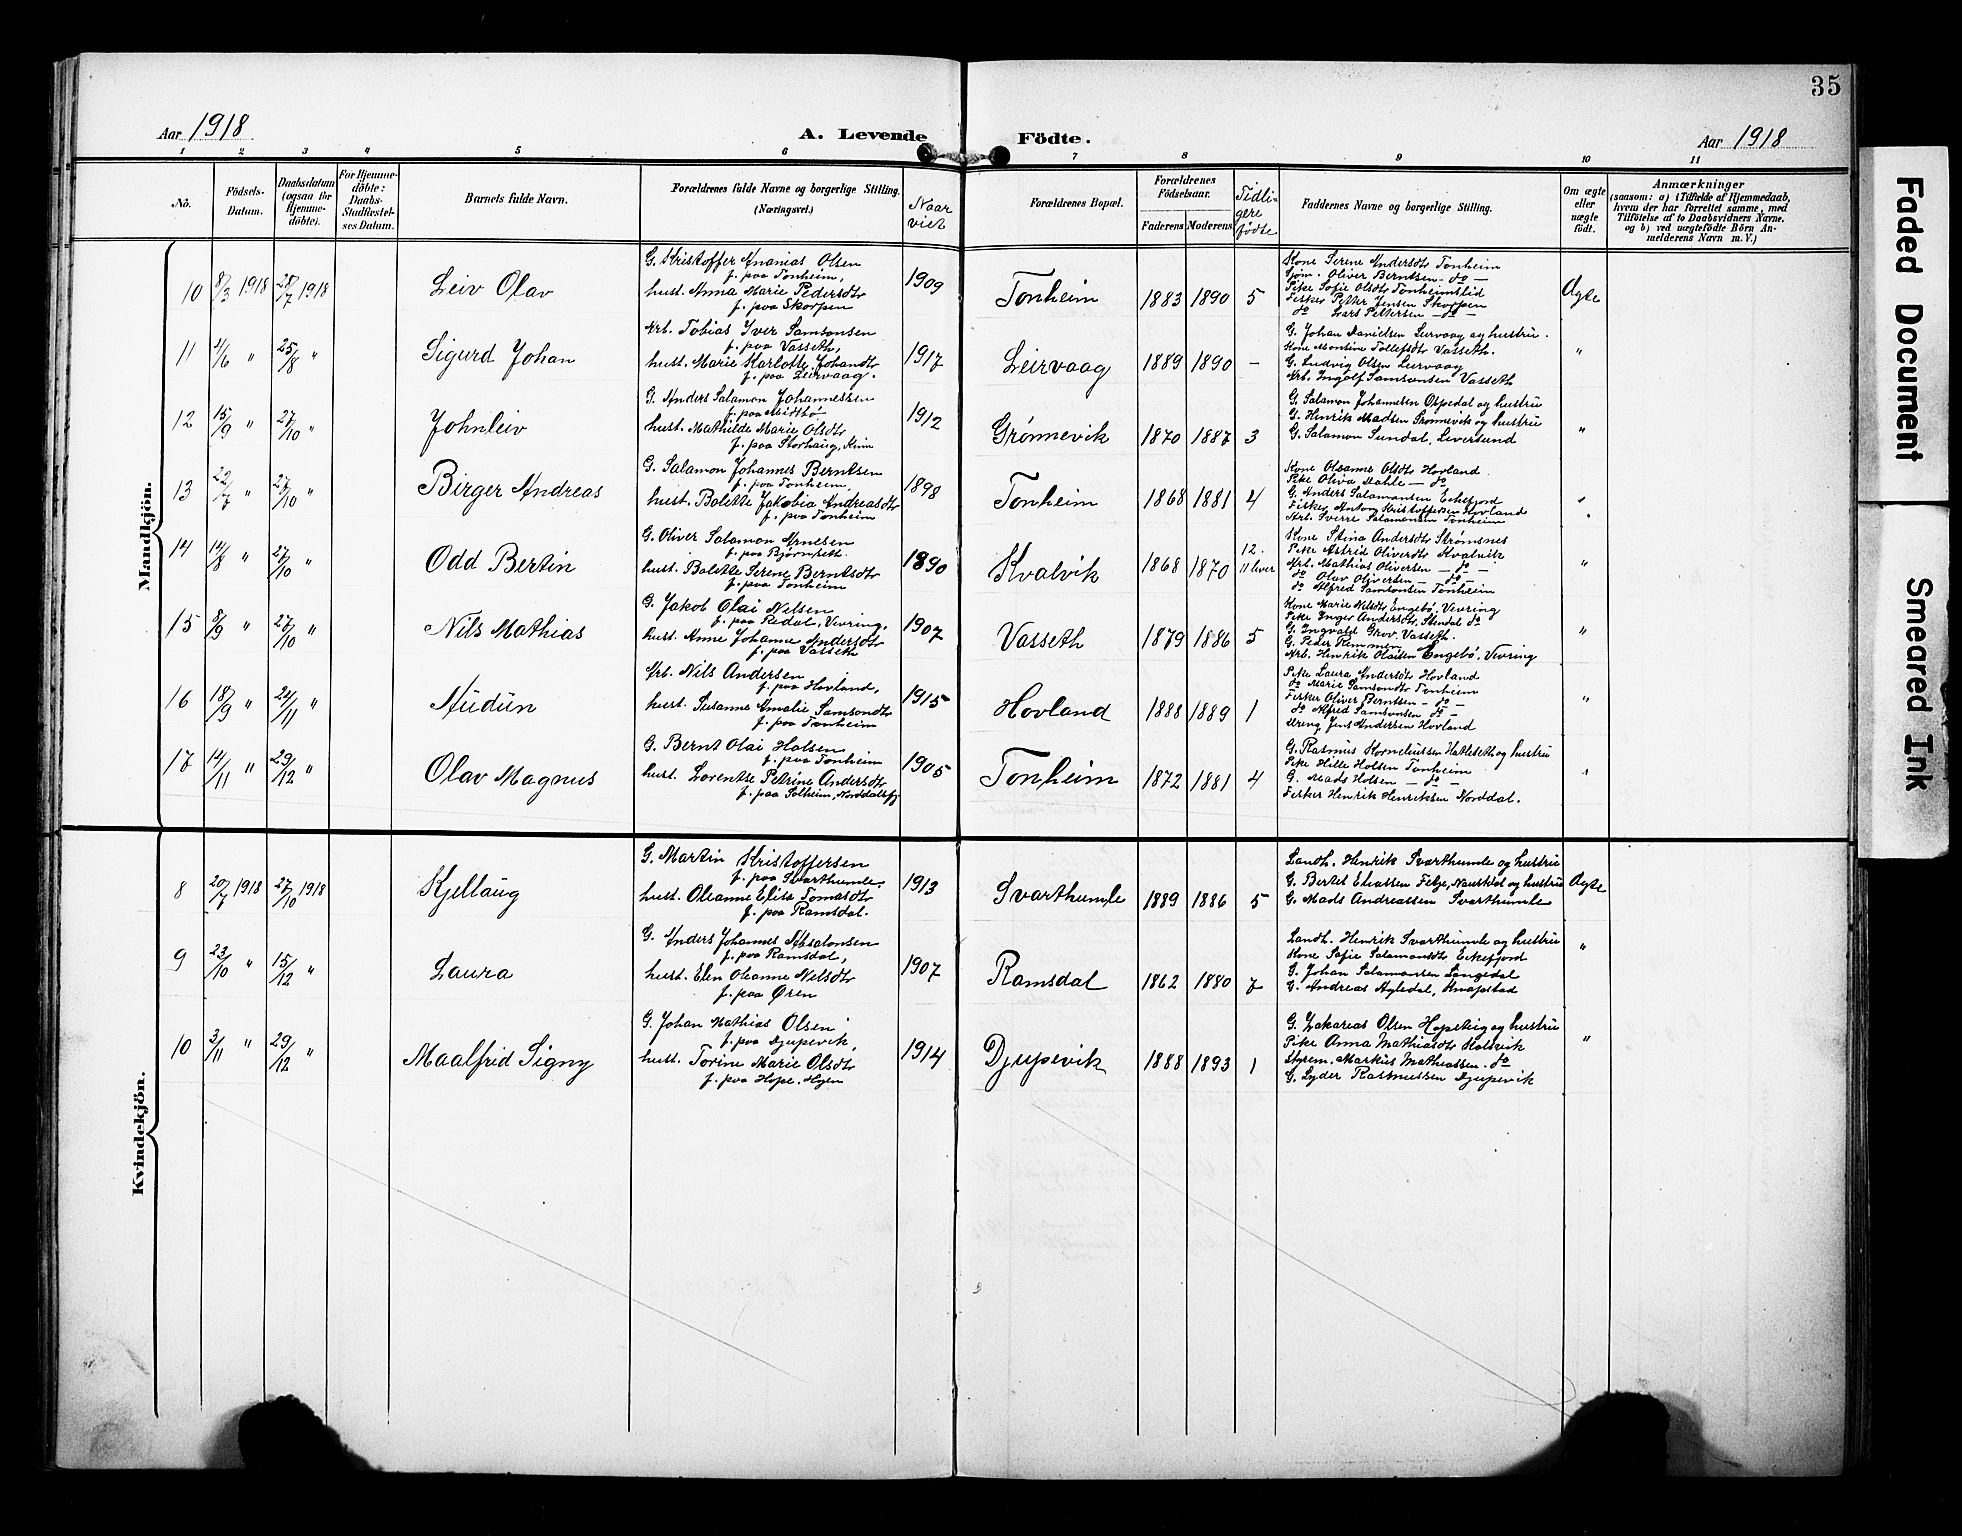 35
Aar 1918
A. Levende Födte.
Aar 1918
1 2 3 4 5 6 7 8 9 10 11
No.
Födsels-
Datum.
Daabsdatum
(ogsaa for
Hjemme-
döbte).
For Hjemme-
döbte:
Daabs-
Stadfæstel-
ses Datum.
Barnets fulde Navn.
Forældrenes fulde Navne og borgerlige Stilling.
(Næringsvei.)
Naar
viet
Forældrenes Bopæl.
Forældrenes
Födselsaar.
Faderens Moderens
Tidli-
gere
fødte
Faddernes Navne og borgerlige Stilling.
Om ægte
eller
uægte
födt.
Anmærkninger
(saasom: a) i Tilfælde af Hjemmedaab,
hvem der har forrettet samme, med
Tilföielse af to Daabsvidners Navne,
og b) ved uægtefödte Börn An-
melderens Navn m. V.)
Mandkjön.
10 8/3 1918 28/7 1918 Leiv Olav
G. Kristoffer Ananias Olsen
f. paa Tonheim,
hust. Anna Marie Pedersdtr
f. paa Skorpen
1909 Tonheim 1883 1890 5
Kone Serene Andersdtr Tonheim
Gjøm. Oliver Berntsen - do -
Pike Sofie Olsdtr Tonheimslid
Fisker Petter Jensen Skorpen
do Lars Pettersen - do -
Ægte
11 4/6 " 25/8 " Sigurd Johan
Arb. Tobias Iver Samsonsen
f. paa Vasseth,
hust. Marie Karlotte Johandtr
f. paa Leirvaag.
1917 Leirvaag 1889 1890 -
G. Johan Danielsen Leirvaag og hustru.
Kone Montine Tollefsdtr Vasseth.
G. Ludvig Olsen Leirvaag
Arb. Ingolf Samsonsen Vasseth
"
12 15/9 " 27/10 " Johnleiv
G. Anders Salamon Johannessen
f. paa Midtbø
hust. Mathilde Marie Olsdtr
f. paa Storhaug, Kinn
1912 Grønnevik 1870 1887 3
G. Salamon Johannesen Ospedal og hustru
G. Henrik Madsen Grønnevik og hustru
G. Salamon Sundal, Leversund
"
13 22/7 " 27/10 " Birger Andreas
G. Salamon Johannes Berntsen
f. paa Tonheim,
hust. Bolette Jakobia Andreasdtr
f. paa Tonheim
1898 Tonheim 1868 1881 4
Kone Oleanne Olsdtr Hovland
Pike Oliva Dahle - do
G. Anders Salamonsen Eikefjord
Fisker Anton Kristoffersen Hovland
Arb. Sverre Salamonsen Tonheim
"
14 14/8 " 27/10 " Odd Bertin
G. Oliver Salamon Arnesen
f. paa Bjørnseth.
hust. Bolette Serene Berntsdtr
f. paa Tonheim
1890 Kvalvik 1868 1870 12. 11 lever
Kone Stina Andersdtr Strømsnes
Pike Astrid Oliversdtr Kvalvik
Arb. Mathias Oliversen - do -
do Olav Oliversen - do -
do Alfred Samsonsen Tonheim
"
15 8/9 " 27/10 " Nils Mathias
G. Jakob Olai Nilsen
f. paa Redal, Vevring,
hust. Anne Johanne Andersdtr
f. paa Vasseth
1907 Vasseth 1879 1886 5
Kone Marie Nilsdtr Engebø, Vevring
Pike Inger Andersdtr, Stendal do
G. Ingvald Grov, Vasseth.
G. Peder Rimmen
Arb. Henrik Olaisen Engebø, Vevring
"
16 18/9 " 24/11 " Audun
Arb. Nils Andersen
f. paa Hovland,
hust. Susanne Amalie Samsondtr
f. paa Tonheim
1915 Hovland 1888 1889 1
Pike Laura Andersdtr Hovland
do Marie Samsondtr Tonheim
Fisker Oliver Berntsen - do -
do Alfred Samsonsen do -
Dreng Jens Andersen Hovland
"
17 14/11 " 29/12 " Olav Magnus
G. Bernt Olai Holsen
f. paa Tonheim
hust. Lorentse Petrine Andersdtr
f. paa Solheim, Norddalsfj.
1905 Tonheim 1872 1881 4
G. Rasmus Korneliussen Hatleseth og hustru
Pike Hille Holsen Tonheim
G. Mads Holsen - do -
Fisker Henrik Henriksen Norddal.
"
Kvindekjön.
8 20/7 1918 27/10 1918 Kjellaug
G. Martin Kristoffersen
f. paa Svarthumle.
hust. Oleanne Elisa Tomasdtr
f. paa Ramsdal.
1913 Svarthumle 1889 1886 5
Landh. Henrik Svarthumle og hustru
G. Bertel Eliassen Felje, Naustdal og hustru
G. Mads Andreassen Svarthumle
Ægte
9 23/10 " 15/12 " Laura
G. Anders Johannes Absalonsen
f. paa Ramsdal,
hust. Elen Oleanne Nilsdtr
f. paa Øren
1907 Ramsdal 1862 1880 7
Landh. Henrik Svarthumle og hustru
Kone Sofie Salamonsdtr Eikefjord
G. Johan Salamonsen Langedal
G. Andreas Agledal, Knapstad
"
10 3/11 " 29/12 " Maalfrid Signy
G. Johan Mathias Olsen
f. paa Djupevik,
hust. Torine Marie Olsdtr
f. paa Hope, Hyen
1914 Djupevik 1888 1893 1
G. Zakarias Olsen Hopsteig og hustru
Pike Anna Mathiasdtr Kolsvik
Styrem. Markus Mathiassen. do
G. Lyder Rasmussen Djupevik
"
Faded Document
Smeared Ink